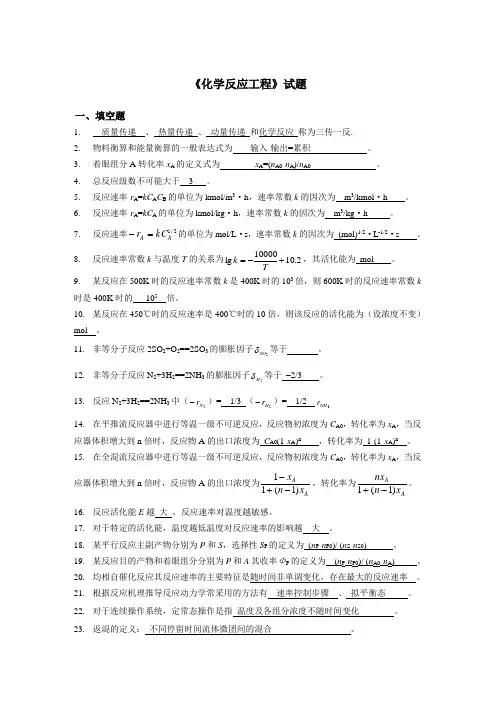 《化学反应工程》试题
一、填空题
1. 质量传递 、 热量传递 、 动量传递 和化学反应 称为三传一反.
2. 物料衡算和能量衡算的一般表达式为 输入-输出=累积 。
3. 着眼组分 A 转化率 xA 的定义式为 xA=(nA0-nA)/nA0 。
4. 总反应级数不可能大于 3 。
5. 反应速率 rA=kCACB 的单位为 kmol/m³·h,速率常数 k 的因次为 m³/kmol·h 。
6. 反应速率 rA=kCA 的单位为 kmol/kg·h,速率常数 k 的因次为 m³/kg·h 。
7. 反应速率 −rA = kCA^1/2 的单位为 mol/L·s,速率常数 k 的因次为 (mol)^1/2·L^-1/2·s 。
8. 反应速率常数 k 与温度 T 的关系为 lg k = −10000/T + 10.2,其活化能为 mol 。
9. 某反应在 500K 时的反应速率常数 k 是 400K 时的 10³ 倍,则 600K 时的反应速率常数 k
时是 400K 时的 10⁵ 倍。
10. 某反应在 450℃时的反应速率是 400℃时的 10 倍,则该反应的活化能为(设浓度不变)
mol 。
11. 非等分子反应 2SO₂+O₂==2SO₃ 的膨胀因子 δSO₂ 等于 。
12. 非等分子反应 N₂+3H₂==2NH₃ 的膨胀因子 δH₂ 等于 –2/3 。
13. 反应 N₂+3H₂==2NH₃ 中(−rN₂)= 1/3 (−rH₂)= 1/2 rNH₃
14. 在平推流反应器中进行等温一级不可逆反应,反应物初浓度为 CA0,转化率为 xA,当反
应器体积增大到 n 倍时,反应物 A 的出口浓度为 CA0(1-xA)ⁿ ,转化率为 1-(1-xA)ⁿ 。
15. 在全混流反应器中进行等温一级不可逆反应,反应物初浓度为 CA0,转化率为 xA,当反
应器体积增大到 n 倍时,反应物 A 的出口浓度为 (1−xA)/(1+(n−1)xA),转化率为 nxA/(1+(n−1)xA)。
16. 反应活化能 E 越 大 ,反应速率对温度越敏感。
17. 对于特定的活化能,温度越低温度对反应速率的影响越 大 。
18. 某平行反应主副产物分别为 P 和 S,选择性 SP 的定义为 (nP-nP0)/ (nS-nS0) 。
19. 某反应目的产物和着眼组分分别为 P 和 A 其收率 ΦP 的定义为 (nP-nP0)/ (nA0-nA) 。
20. 均相自催化反应其反应速率的主要特征是随时间非单调变化,存在最大的反应速率 。
21. 根据反应机理推导反应动力学常采用的方法有 速率控制步骤 、 拟平衡态 。
22. 对于连续操作系统,定常态操作是指 温度及各组分浓度不随时间变化 。
23. 返混的定义: 不同停留时间流体微团间的混合 。